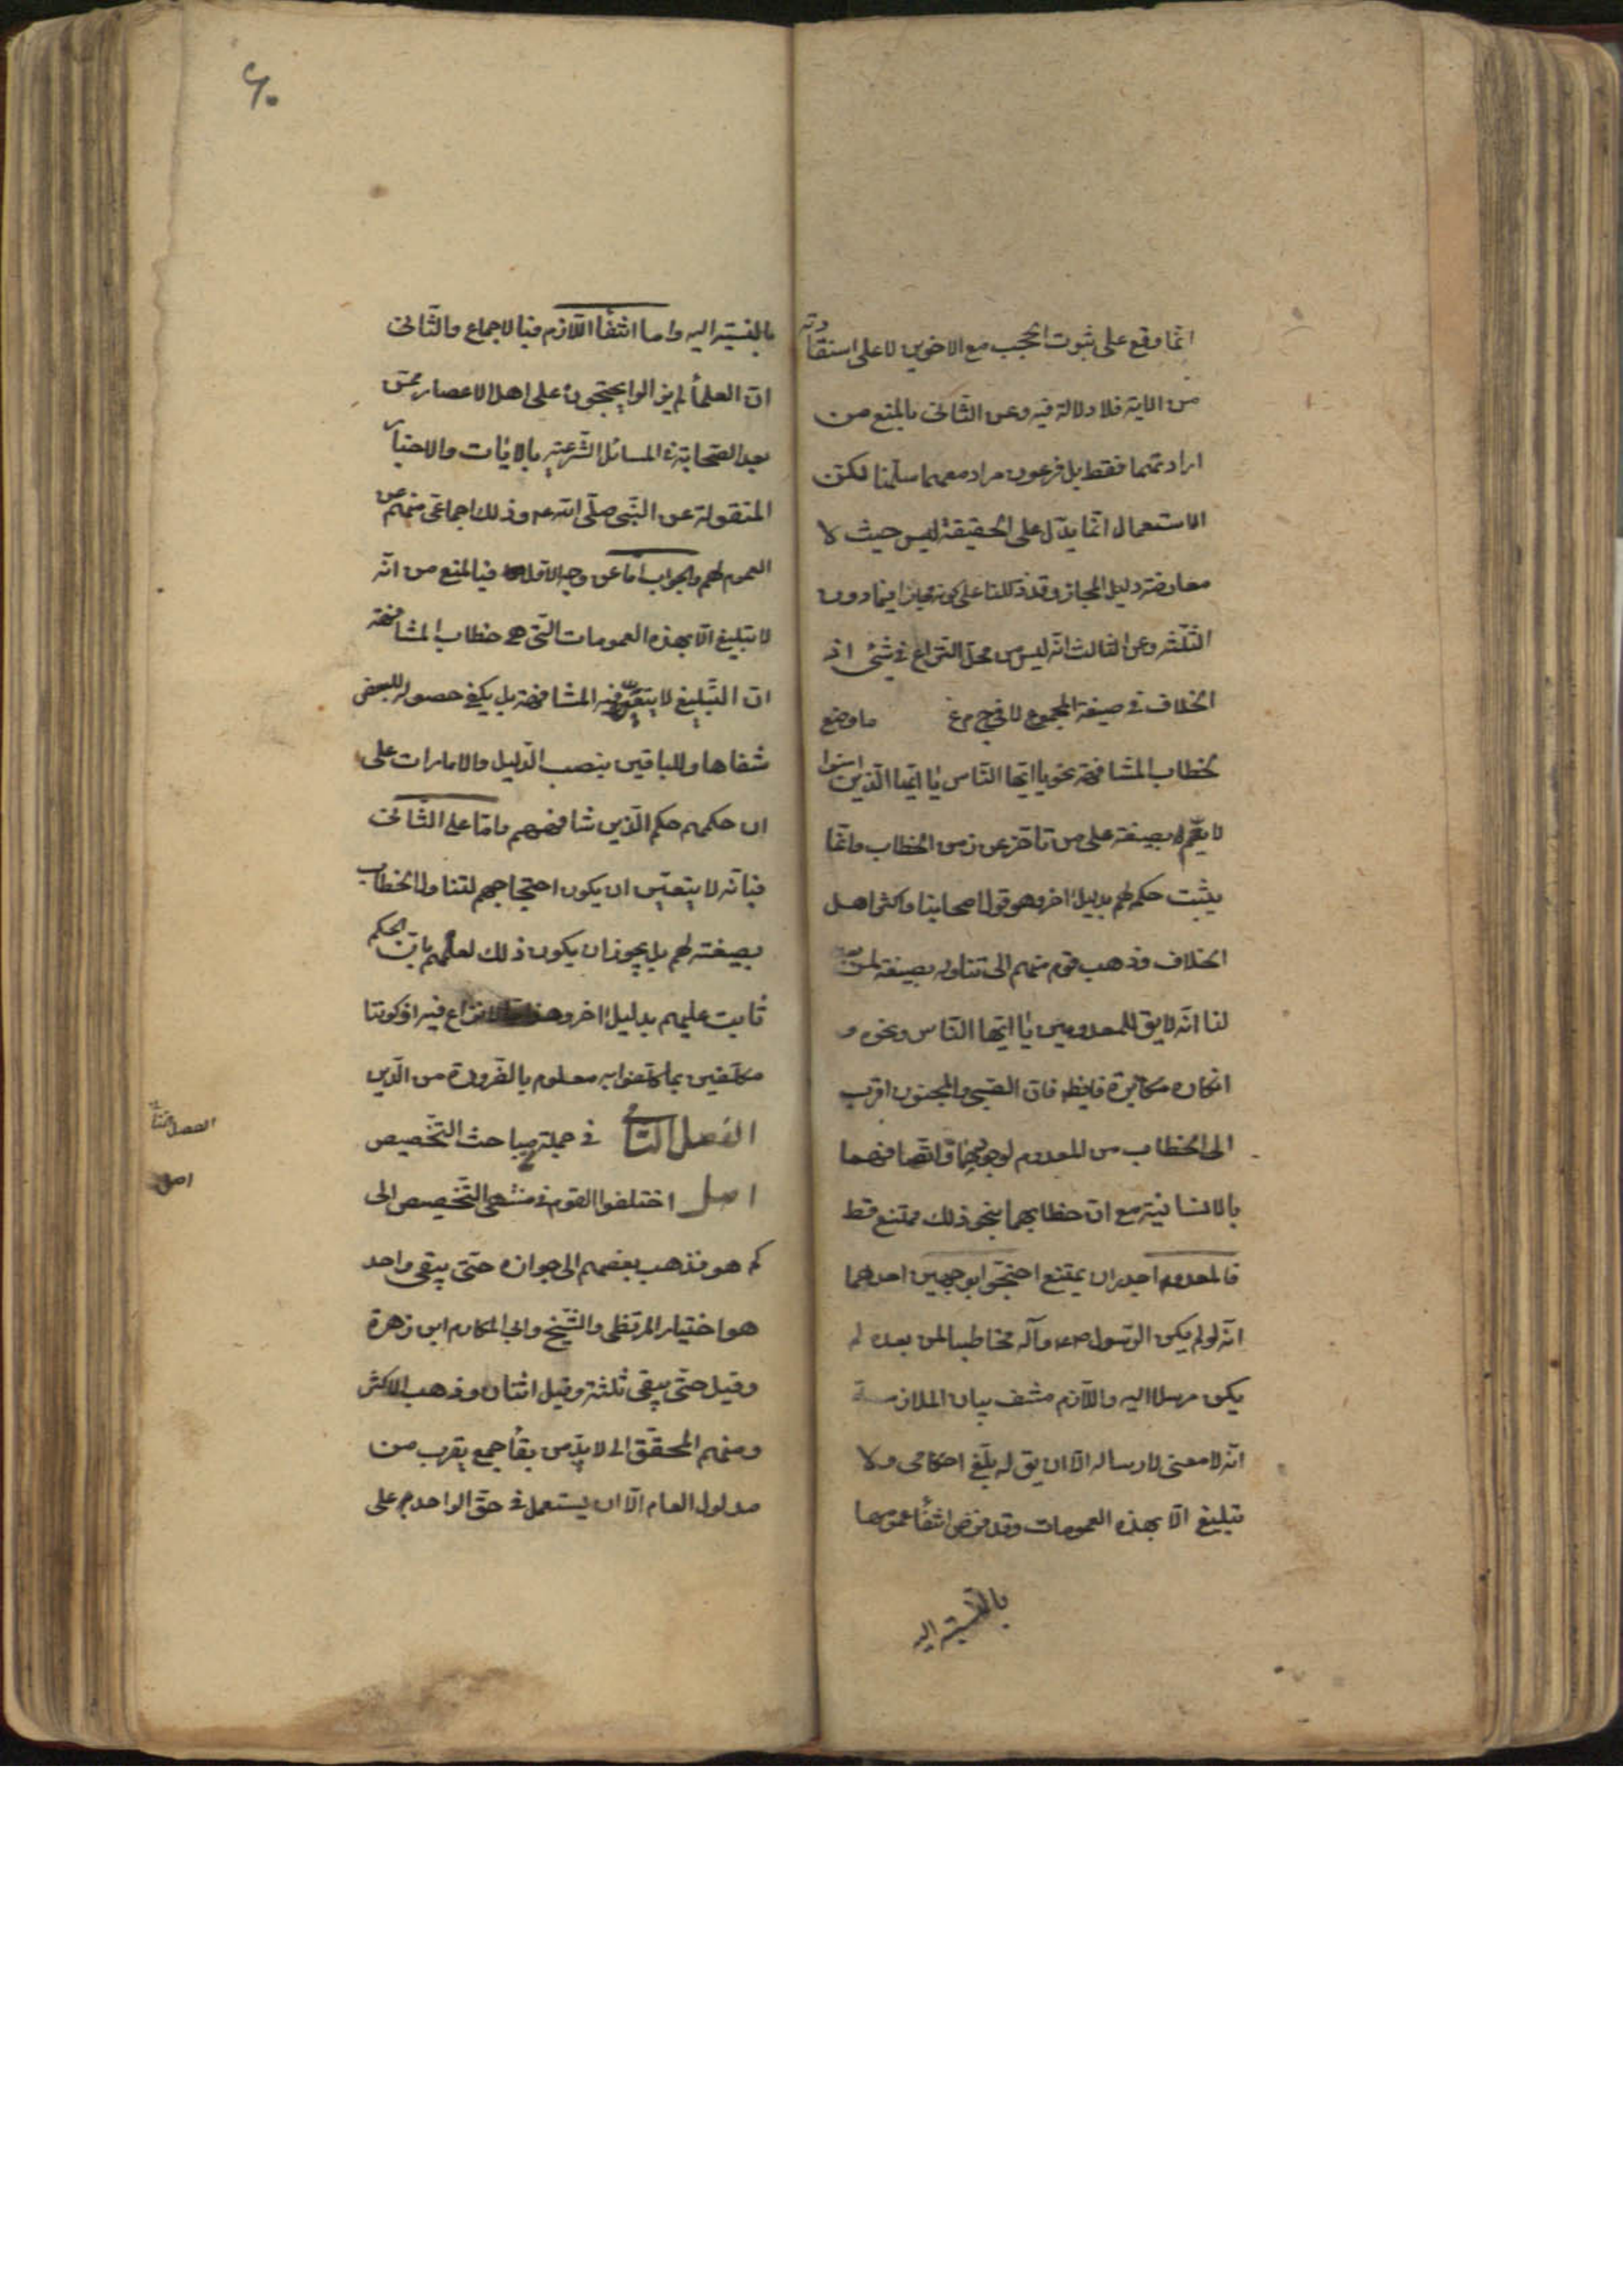 انّما وقع على ثبوت الحجب مع الاخوين لا على استفادته
من الآية فلا دلالة فيه وعن الثانى بالمنع من
ارادتهما فقط بل فرعون مراد معهما سلّمنا لكن
الاستعمال انّما يدل على الحقيقة ليس حيث لا
معارضة دليل المجاز وقد دللنا على كونه مجازا فيما دون
الثلثة وعن الثالث انّه ليس من محل النزاع فى شئ اذ
الخلاف فى صيغة المجموع لا فى ج م ع ما وضع
لخطاب المشافهة نحو يا ايّها النّاس يا ايّها الّذين امنوا
لا يعمّ بصيغته على من تأخّر عن زمن الخطاب وانّما
يثبت حكمه لهم بدليل اخر وهو قول اصحابنا واكثر اهل
الخلاف وذهب قوم منهم الى تناوله بصيغته لمن بعدهم
لنا انّه لا يق للمعدومين يا ايّها النّاس ونحوه و
انكاره مكابرة فايضا فان الصّبى والمجنون اقرب
الى الخطاب من المعدوم لوجودهما واتّصافهما
بالانسانية مع ان خطابهما بنحو ذلك ممتنع قطعا
فالمعدوم اجدر ان يمتنع احتجّوا بوجهين احدهما
انّه لو لم يكن الرّسول ص ع وآله مخاطبا لمن بعده لم
يكن مرسلا اليه واللّازم منتف بيان الملازمة
انّه لا معنى لارساله الّا ان يق له بلّغ احكامى ولا
تبليغ الّا بهذه العمومات وقد فرض انتفاء عمومها
بالنّسبة اليه
٦٠
بالنسبة اليه واما انتفاء اللّازم فبالاجماع والثّانى
انّ العلماء لم يزالوا يحتجّون على اهل الاعصار ممّن
بعد الصّحابة فى المسائل الشّرعية بالايات والاخبار
المنقولة عن النّبى صلّى الله ع وذلك اجماع منهم عن
العموم لهم والجواب امّا عن وجه الاوّل فبالمنع من انّه
لا تبليغ الّا بهذه العمومات الّتى هى خطاب المشافهة
ان التّبليغ لا يتعيّن فيه المشافهة بل يكفى حصوله للبعض
شفاها وللباقين بنصب الدّليل والامارات على
ان حكمهم حكم الّذين شافههم وامّا على الثّانى
فبانّه لا يتعيّن ان يكون احتجاجهم لتناول الخطاب
بصيغته لهم بل يجوز ان يكون ذلك لعلمهم بان الحكم
ثابت عليهم بدليل اخر وهذا ممّا لا نزاع فيه اذ كوننا
مكلّفين بما كلّفوا به معلوم بالضّرورة من الدّين
الفصل الثانى فى جملة مباحث التّخصيص
اصل اختلفوا القوم فى منتهى التّخصيص الى
كم هو فذهب بعضهم الى جوازه حتّى يبقى واحد
هو اختيار المرتضى والشّيخ وابى المكارم ابن زهرة
وقيل حتّى يبقى ثلثة وقيل اثنان وذهب الاكثر
ومنهم المحقّق الى لا بدّ من بقاء جمع يقرب من
مدلول العام الّا ان يستعمل فى حقّ الواحد على
الفصل الثانى
اصل